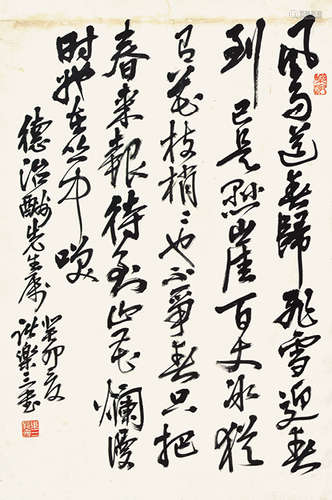 風雨送春歸飛雪迎春
到已是懸崖百丈冰猶
有花枝俏〻也不爭春只把
春來報待到山花爛漫
时她在丛中咲
德治 先生属
癸卯夏
諸樂三書